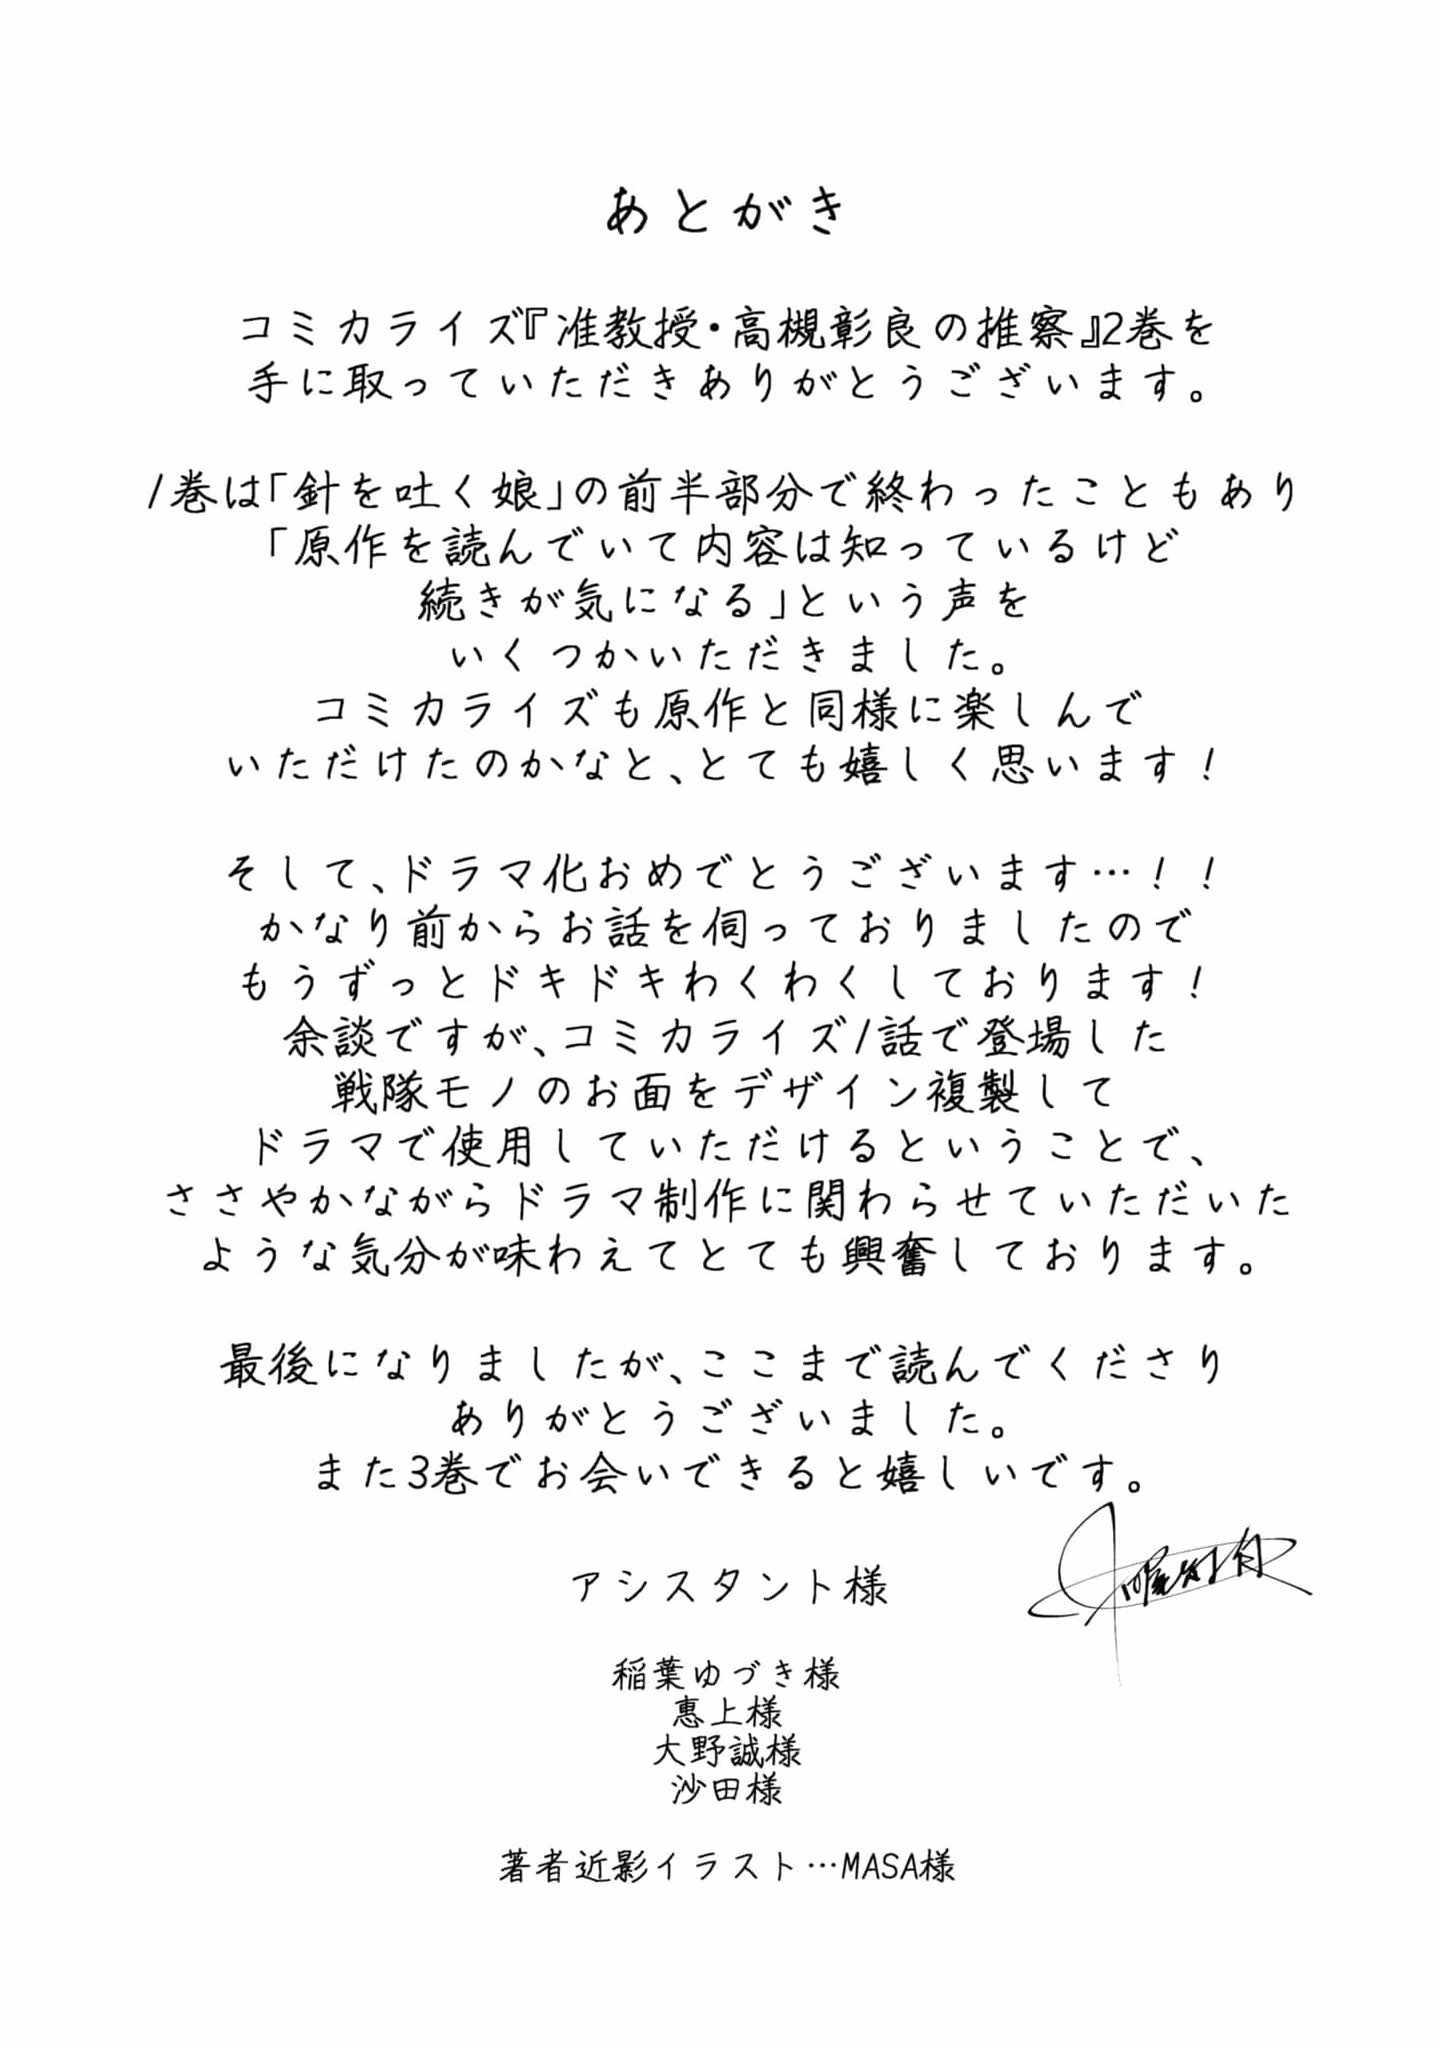 あとがき
コミカライズ『准教授・高槻彰良の推察』2巻を
手に取っていただきありがとうございます。
1巻は「針を吐く娘」の前半部分で終わったこともあり
「原作を読んでいて内容は知っているけど
続きが気になる」という声を
いくつかいただきました。
コミカライズも原作と同様に楽しんで
いただけたのかなと、とても嬉しく思います！
そして、ドラマ化おめでとうございます…！！
かなり前からお話を伺っておりましたので
もうずっとドキドキわくわくしております！
余談ですが、コミカライズ1話で登場した
戦隊モノのお面をデザイン複製して
ドラマで使用していただけるということで、
ささやかながらドラマ制作に関わらせていただいた
ような気分が味わえてとても興奮しております。
最後になりましたが、ここまで読んでくださり
ありがとうございました。
また3巻でお会いできると嬉しいです。
アシスタント様
稲葉ゆづき様
惠上様
大野誠様
沙田様
著者近影イラスト…MASA様